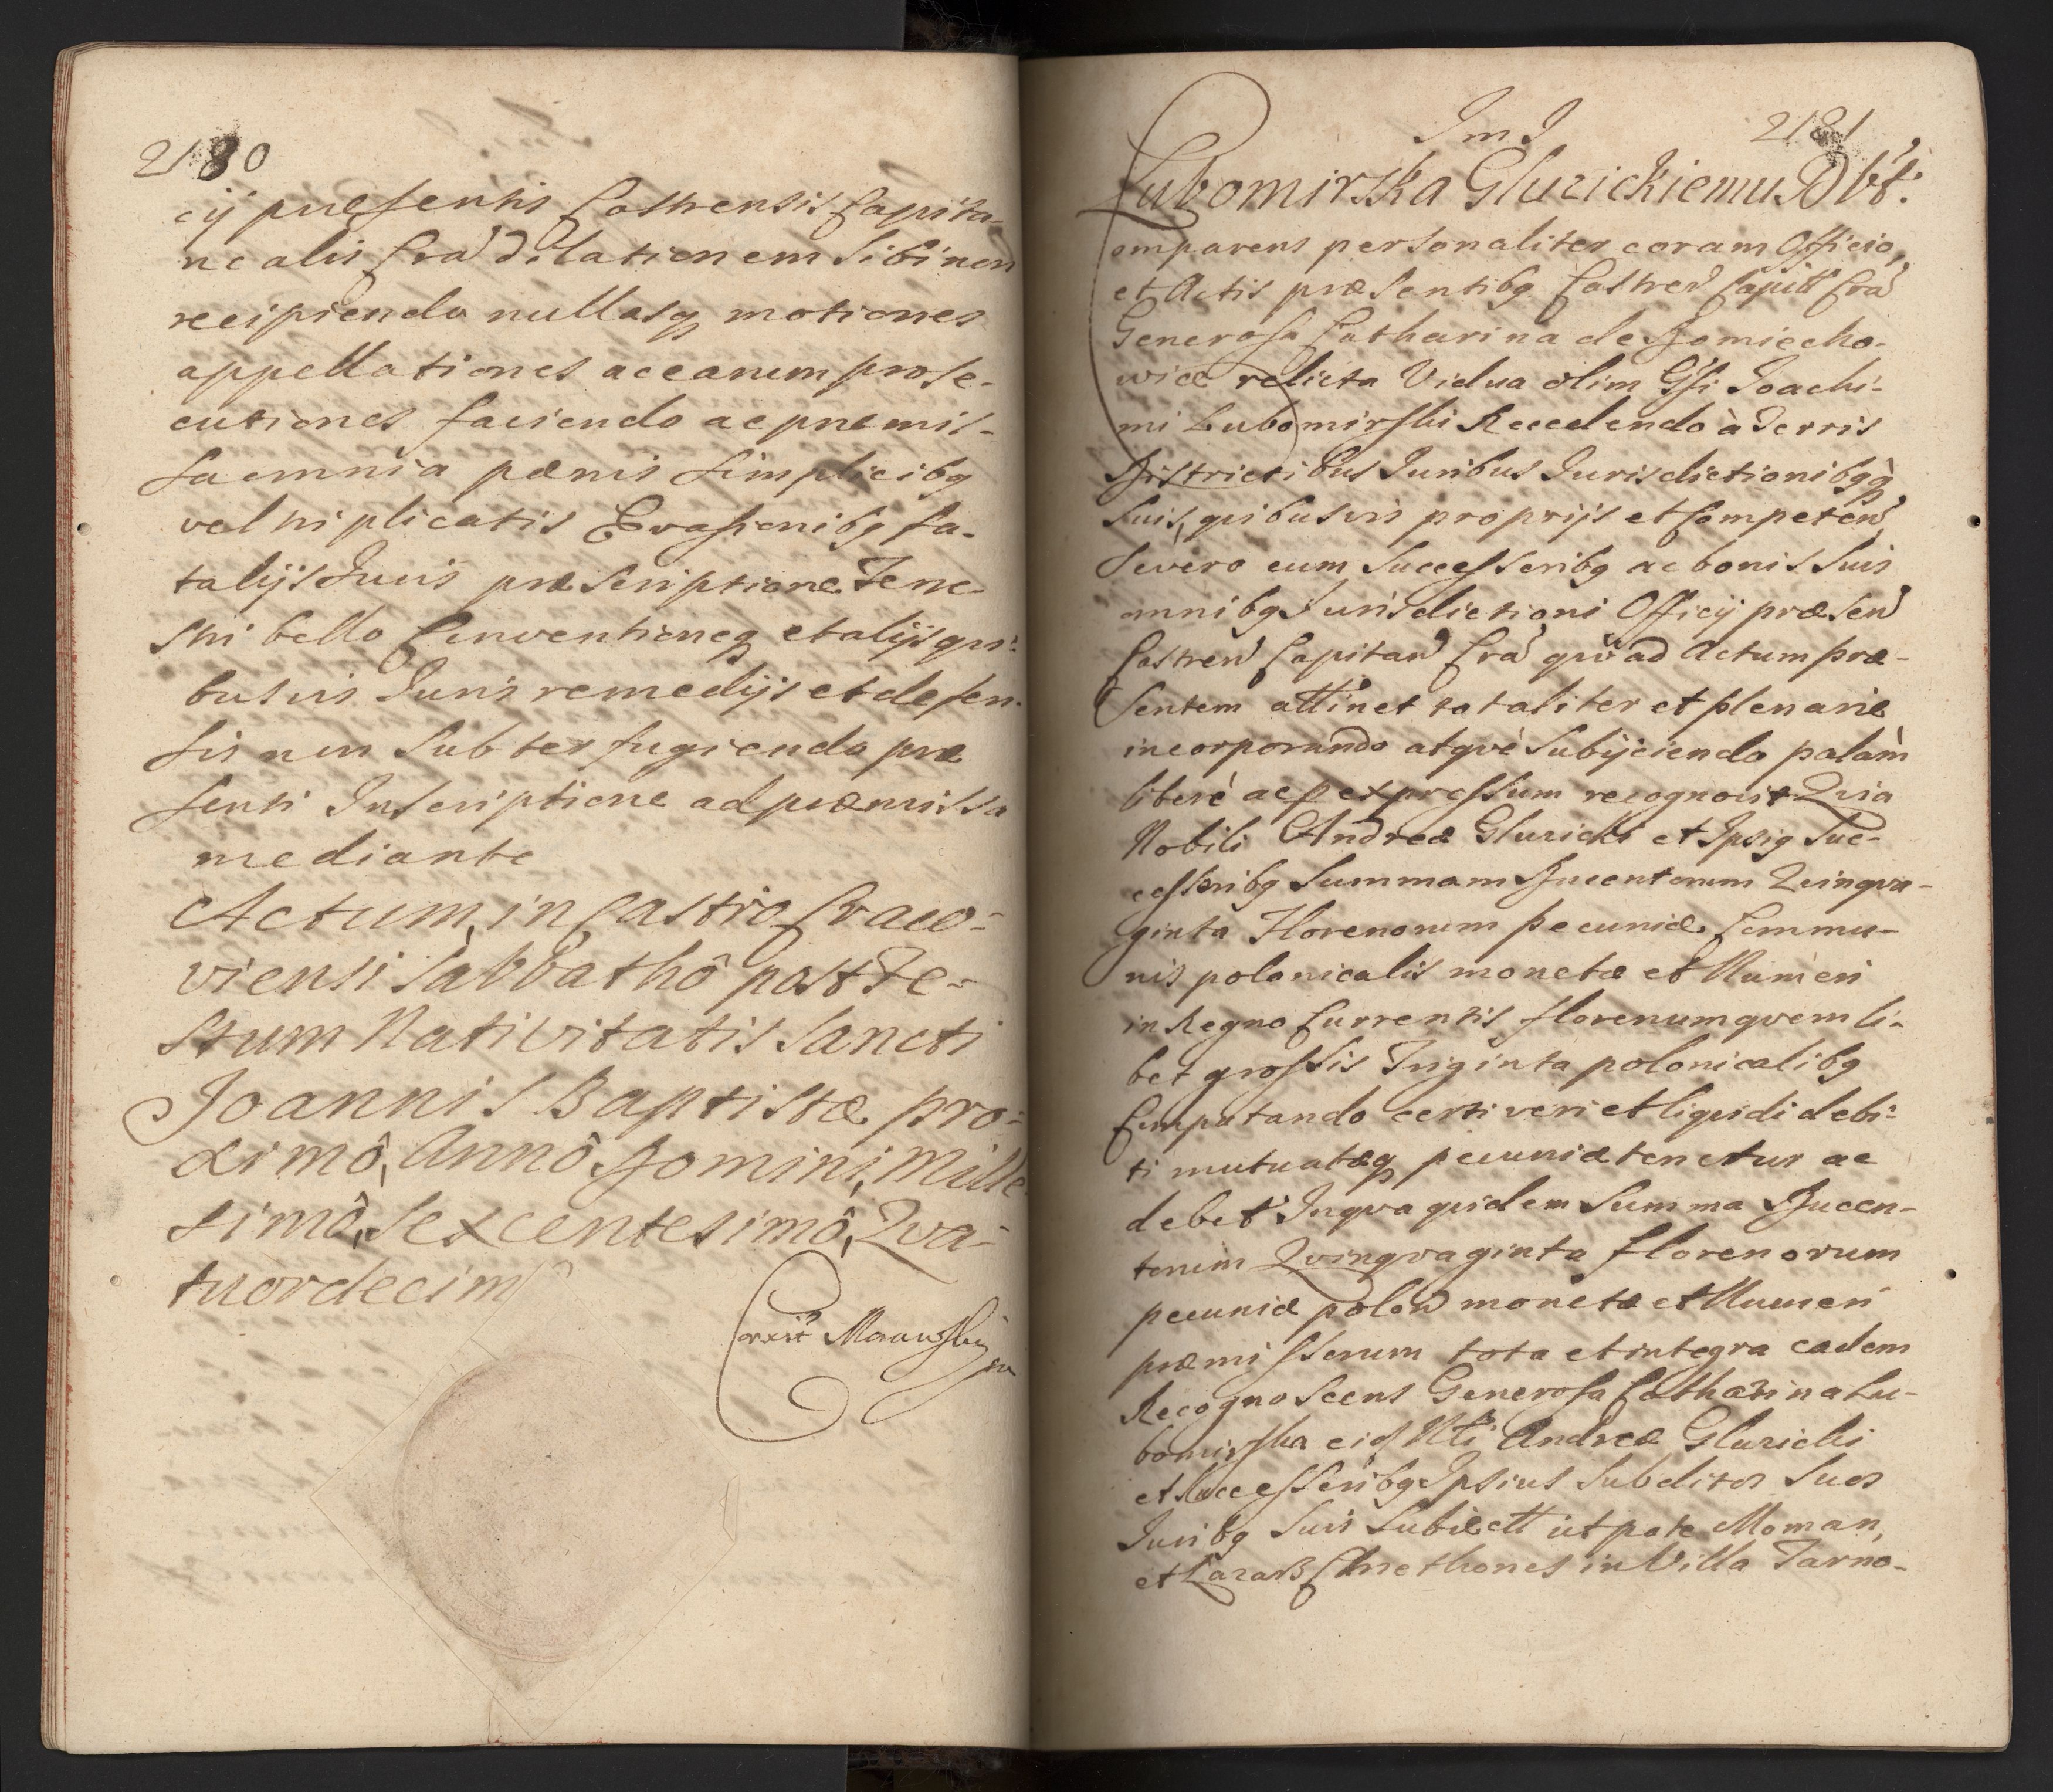 2180
cij præsentis Castrensis Capita-
nealis Cra͠ dilationem sibi non
recipiendo nullasq motiones
appellationes ac earum prose-
cutiones faciendo ac præmis-
sa omnia pænis simplicibq
vel triplicatis Evasionibq fa-
talijs Juris præscriptione Terre-
stri bello Conventioneq et alijs qui-
busvis Juris remedijs et defen-
sis non subterfugiendo præ
senti Inscriptione ad præmissa
mediante
Actum in Castro Craco-
viensi Sabbathô post Fe-
stum Nativitatis Sancti
Joannis Baptistæ pro-
ximô, Annô Domini, Mille-
simô, Sexcentesimô, Qva-
tuordecim
Corexit
2181
JmJ
Lubomirska Gluzickiemu Dbt.
omparens personaliter coram Officio,
et Actis præsentibq Castren͠ Capitt Cra͠
Generosa Catharina de Domiecho-
wice relicta Vidua olim Gsi Joachi-
mi Lubomirski Recedendo à Terris
Districtibus Juribus Jurisdictionibqq
suis, quibusvis proprijs et Competen͠
severo cum Successoribq ac bonis suis
omnibq Jurisdictioni Officij præsen͠
Castren͠ Capitan͠ Cra͠ qvo ad Actum præ-
sentem attinet totaliter et plenarie
incorporando atqve subijciendo palam
liberé ac p expressum recognovit Qvia
Nobili Andreæ Gluzicki et Ipsiq Suc-
cessoribq Summam Ducentorum Qvinqva-
ginta Florenorum pecuniæ Commu-
nis polonicalis monetæ et Numeri
in Regno Currentis florenum qvemli-
bet grossis Triginta polonicalibq
Computando certi veri et liquidi debi-
ti mutuatæq pecuniæ tenetur ac
debet Inqva quidem Summa Ducen-
torum Qvinqvaginta florenorum
pecuniæ polon͠ monetæ et Numeri
præmissorum tota et integra eadem
Recognoscens Generosa Catharina Lu-
bomirska eid Nli Andreæ Gluzicki
et Successoribq Ipsius Subditos suos
Juribq suis Subiectt utpote Moman,
et Lazarz Cmethones in Villa Tarno-